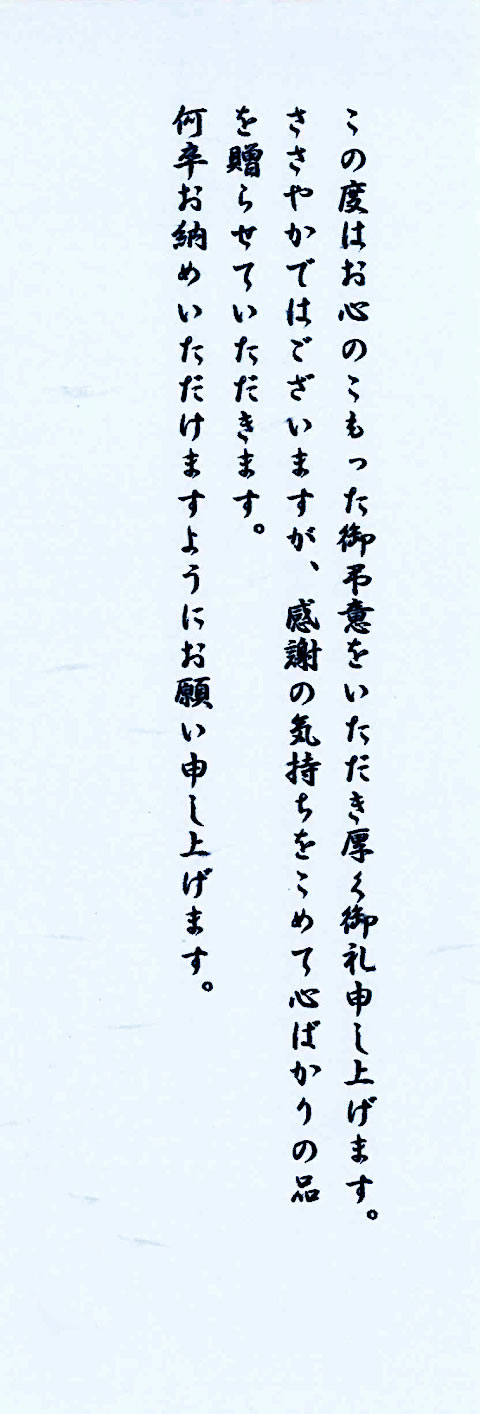 この度はお心のこもった御弔意をいただき厚く御礼申し上げます。
ささやかではございますが、感謝の気持ちをこめて心ばかりの品
を贈らせていただきます。
何卒お納めいただけますようにお願い申し上げます。